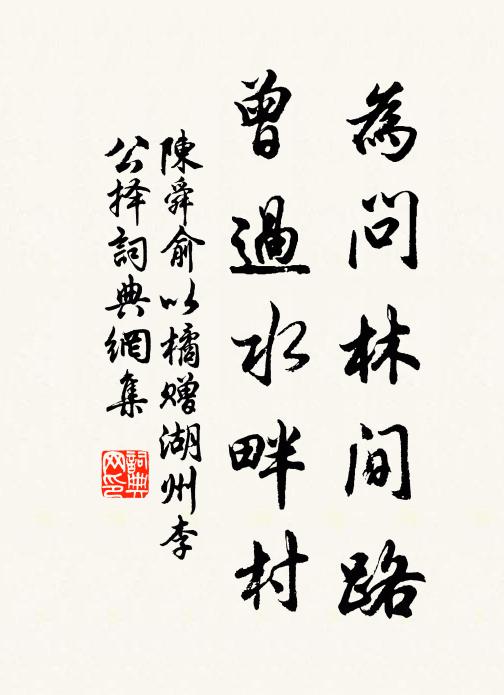 為問林間路
曾過水畔村
陳舜俞以橘贈湖州李
公择詞典網集
詞典网印